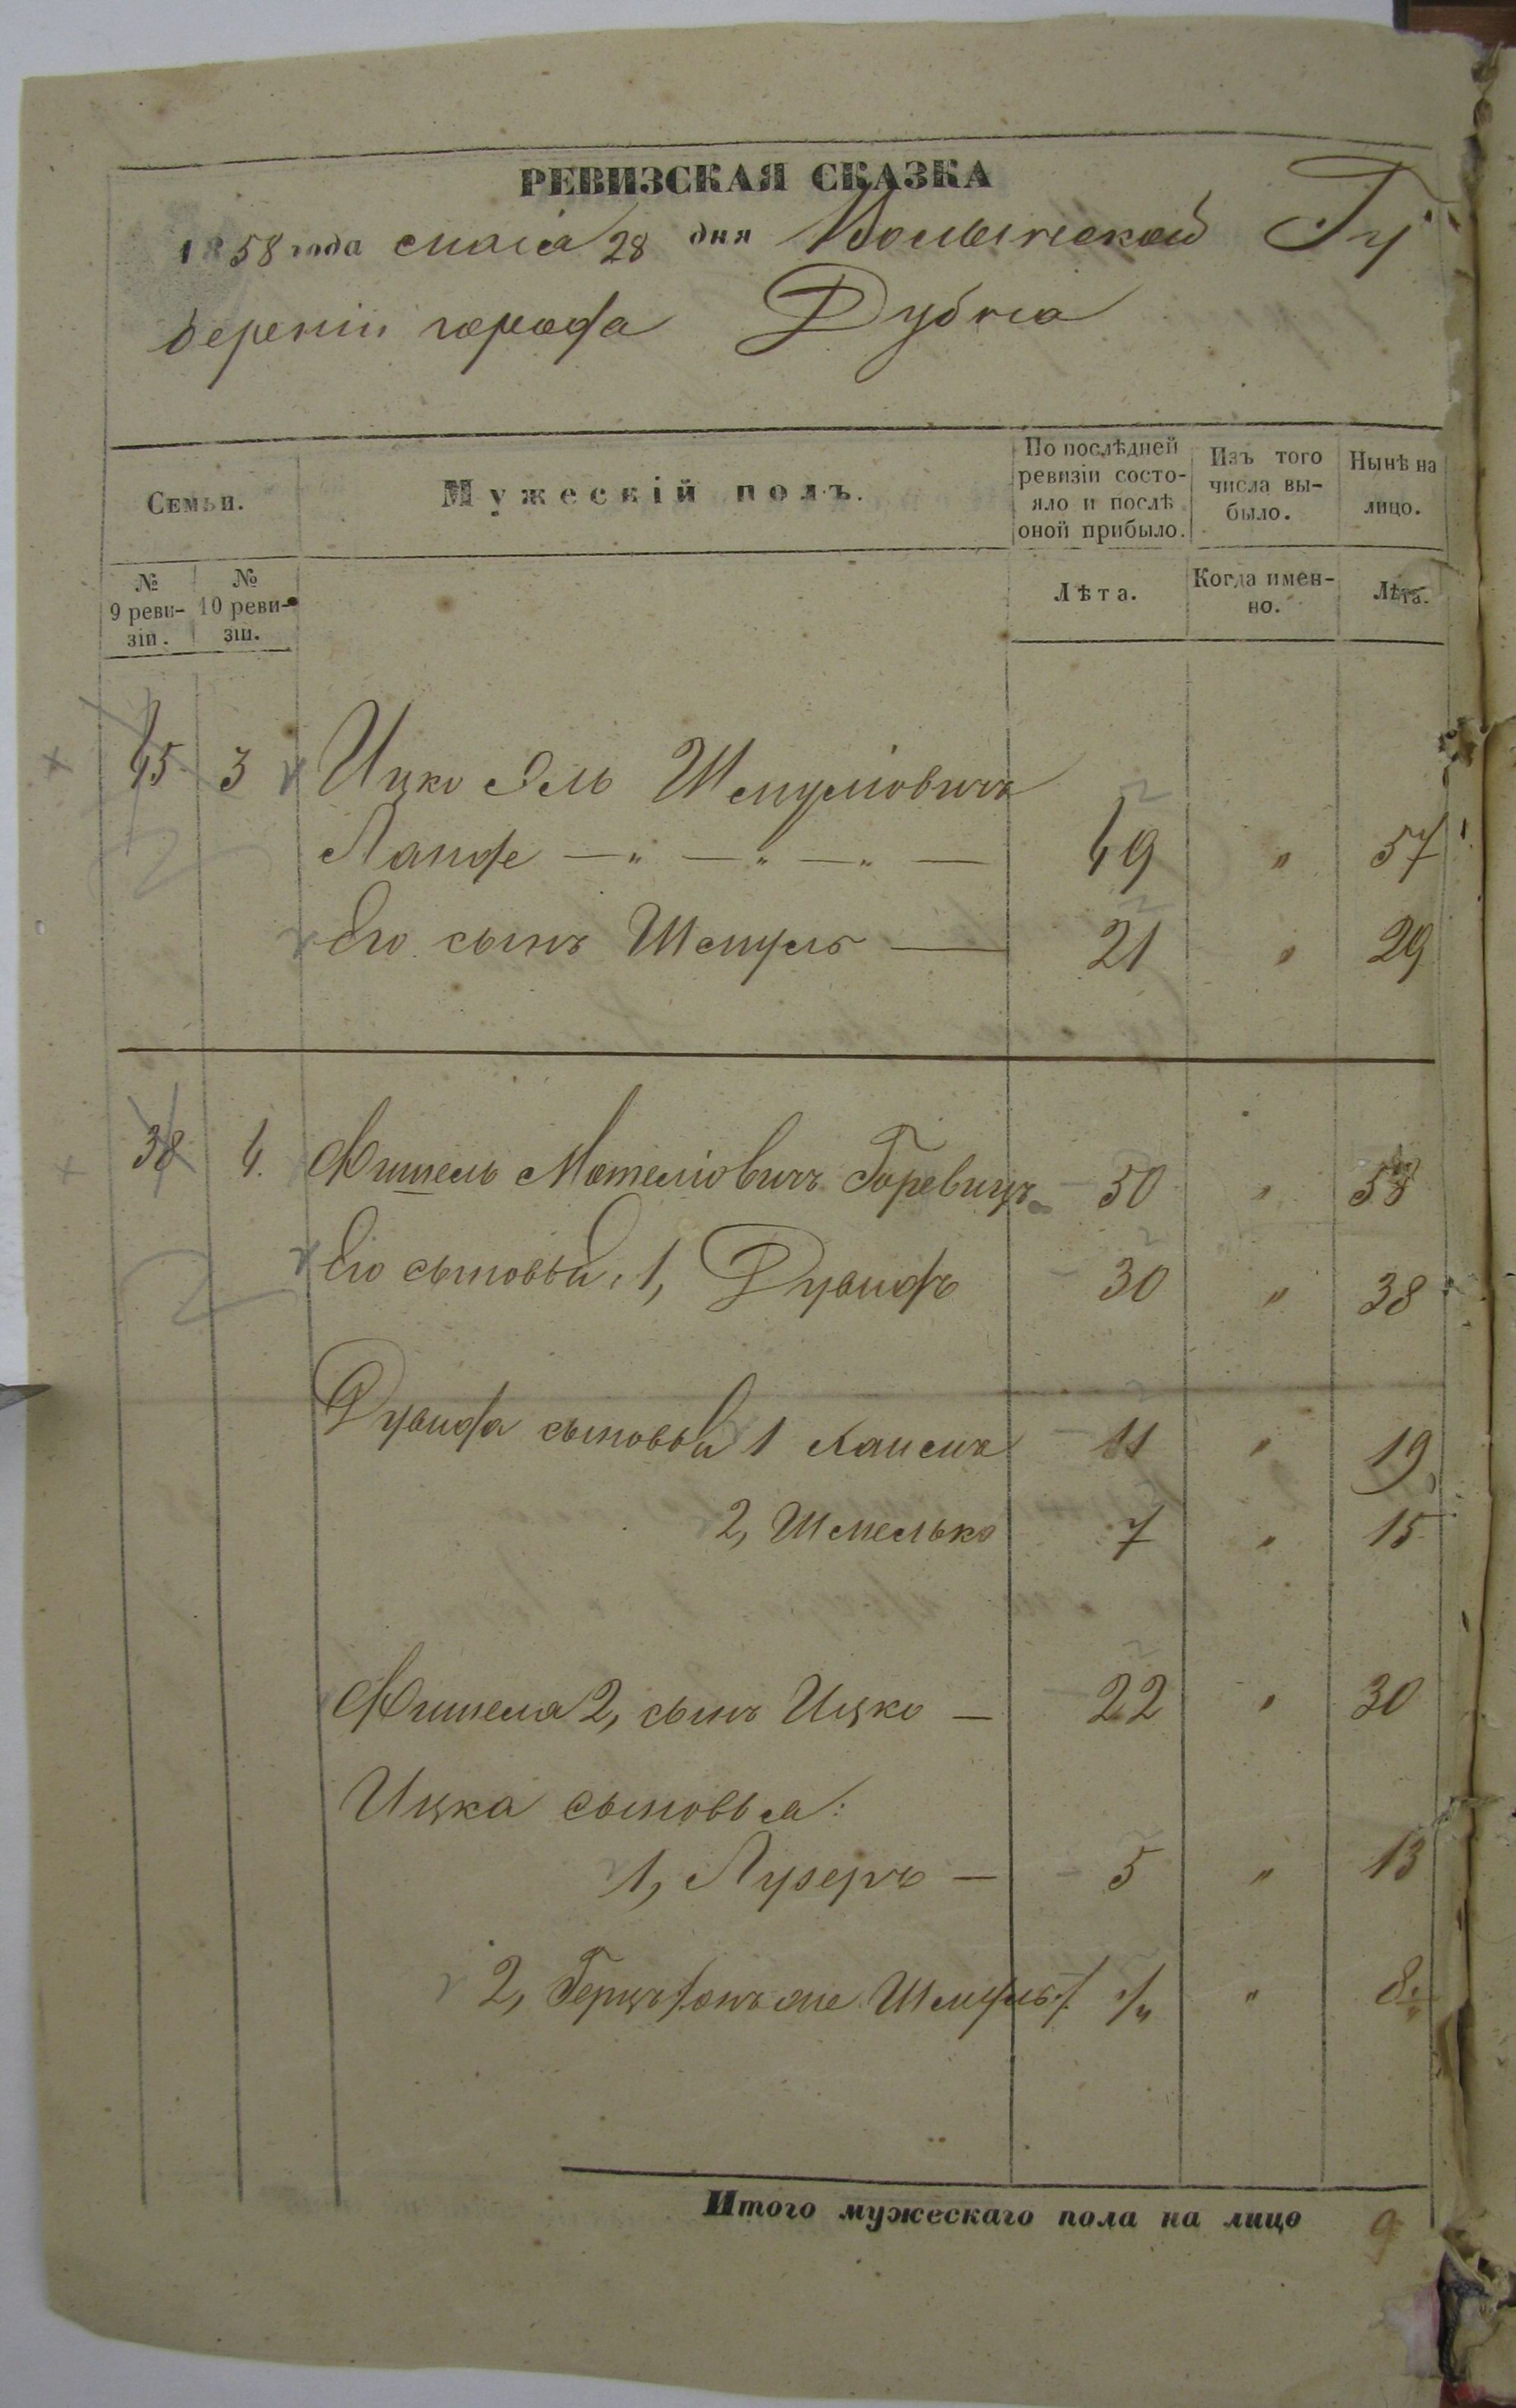 РЕВИЗСКАЯ СКАЗКА
1858 года маія 28 дня Волынской Гу
берніи города Дубна
Семьи.
Мужескій полъ.
По послѣдней ревизіи состо-
яло и послѣ оной прибыло.
Изъ того числа вы-
было.
Нынѣ на лицо.
№ 9 реви-
зіи.
№ 10 реви-
зіи.
Лѣта.
Когда имен-
но.
Лѣта.
45 3 Ицко Эль Шмуліовичъ
Ланде — „ — „ — „ — 49 „ 57
Его сынъ Шмуль — 21 „ 29
38 4. Фишель Мотеліовичъ Горевицъ 50 „ 58
Его сыновья, 1, Дувидъ 30 „ 38
Дувида сыновья 1 11 „ 19
2, Шмелько 7 „ 15
Фишеля 2, сынъ Ицко — 22 „ 30
Ицка сыновья:
1, Лузеръ — 5 „ 13
2, Герцъ /онъ же Шмуль/. „ 8
Итого мужескаго пола на лицо 9